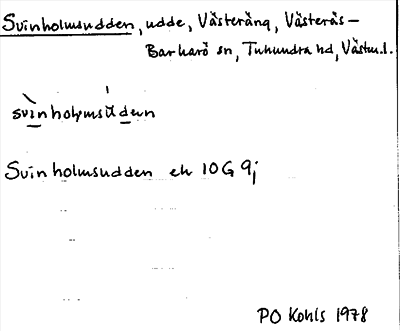 Svinholmsudden, udde, Västeränq, Västerås-
Barkarö sn, Tuhundra hd, Västm.l.
svìnholmsúden
Svinholmsudden ek 10G 9j
PO Kohls 1978